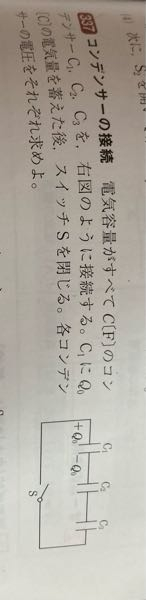 (4) 次に, S₂を開
337 コンデンサーの接続 電気容量がすべてC〔F〕のコン
デンサー C₁, C₂, C₃を, 右図のように接続する。C₁に Q₀
〔C〕の電気量を蓄えた後, スイッチSを閉じる。各コンデン
サーの電圧をそれぞれ求めよ。
C₁ C₂ C₃
+Q₀ −Q₀
S